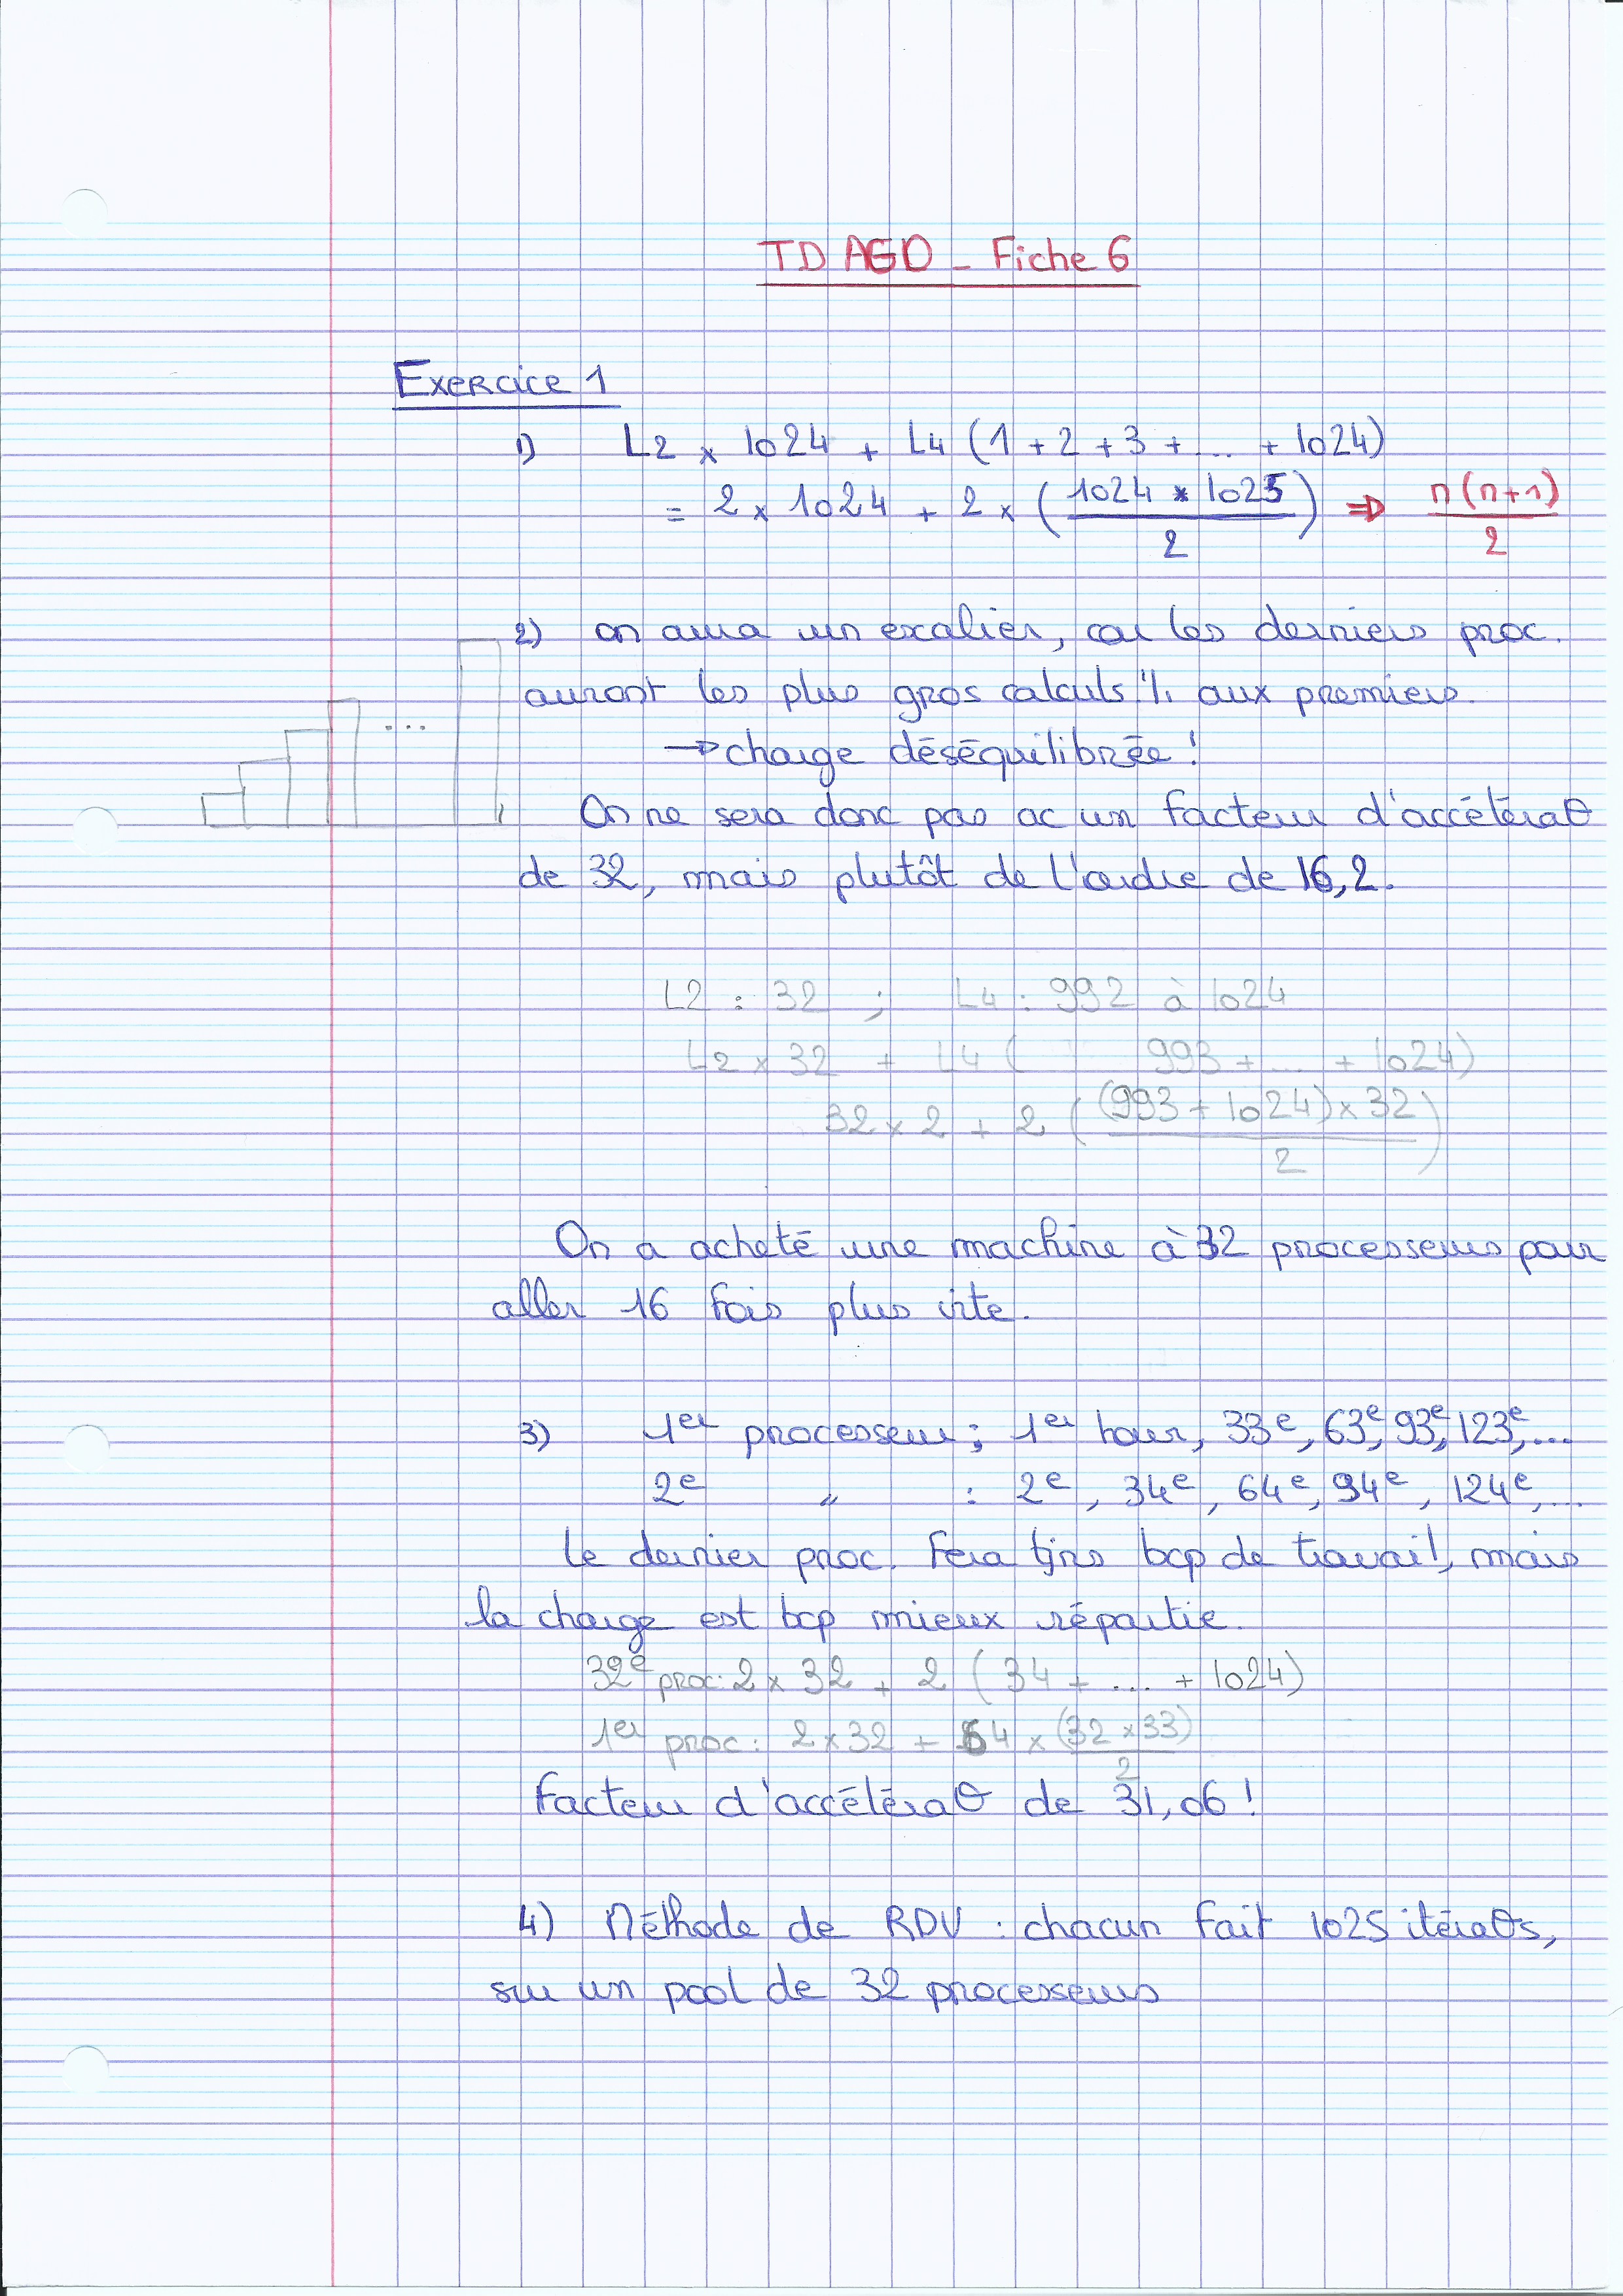 TD AGO - Fiche 6
Exercice 1
1) L2 x 1024 + L4 (1 + 2 + 3 + ... + 1024)
= 2 x 1024 + 2 x ( 1024 * 1025 / 2 ) ⇒ n(n+1) / 2
2) on aura un escalier, car les derniers proc.
auront les plus gros calculs % aux premiers.
...
→ charge déséquilibrée !
On ne sera donc pas ac un facteur d'accéléraθ
de 32, mais plutôt de l'ordre de 16,2.
L2 : 32 ; L4 : 992 à 1024
L2 x 32 + L4 ( 993 + ... + 1024)
32 x 2 + 2 ( (993 + 1024) x 32 / 2 )
On a acheté une machine à 32 processeurs pour
aller 16 fois plus vite.
3) 1er processeur : 1er tour, 33e, 63e, 93e, 123e, ...
2e " : 2e, 34e, 64e, 94e, 124e, ...
Le dernier proc. fera tjrs bcp de travail, mais
la charge est bcp mieux répartie.
32e proc: 2 x 32 + 2 ( 34 + ... + 1024)
1er proc: 2 x 32 + 64 x (32 x 33) / 2
Facteur d'accéléraθ de 31,06 !
4) Méthode de RDV : chacun fait 1025 itéraθs,
sur un pool de 32 processeurs